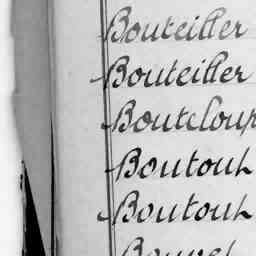 Bouteiller
Bouteiller
Bouteloup
Boutout
Boutout
Bouvet